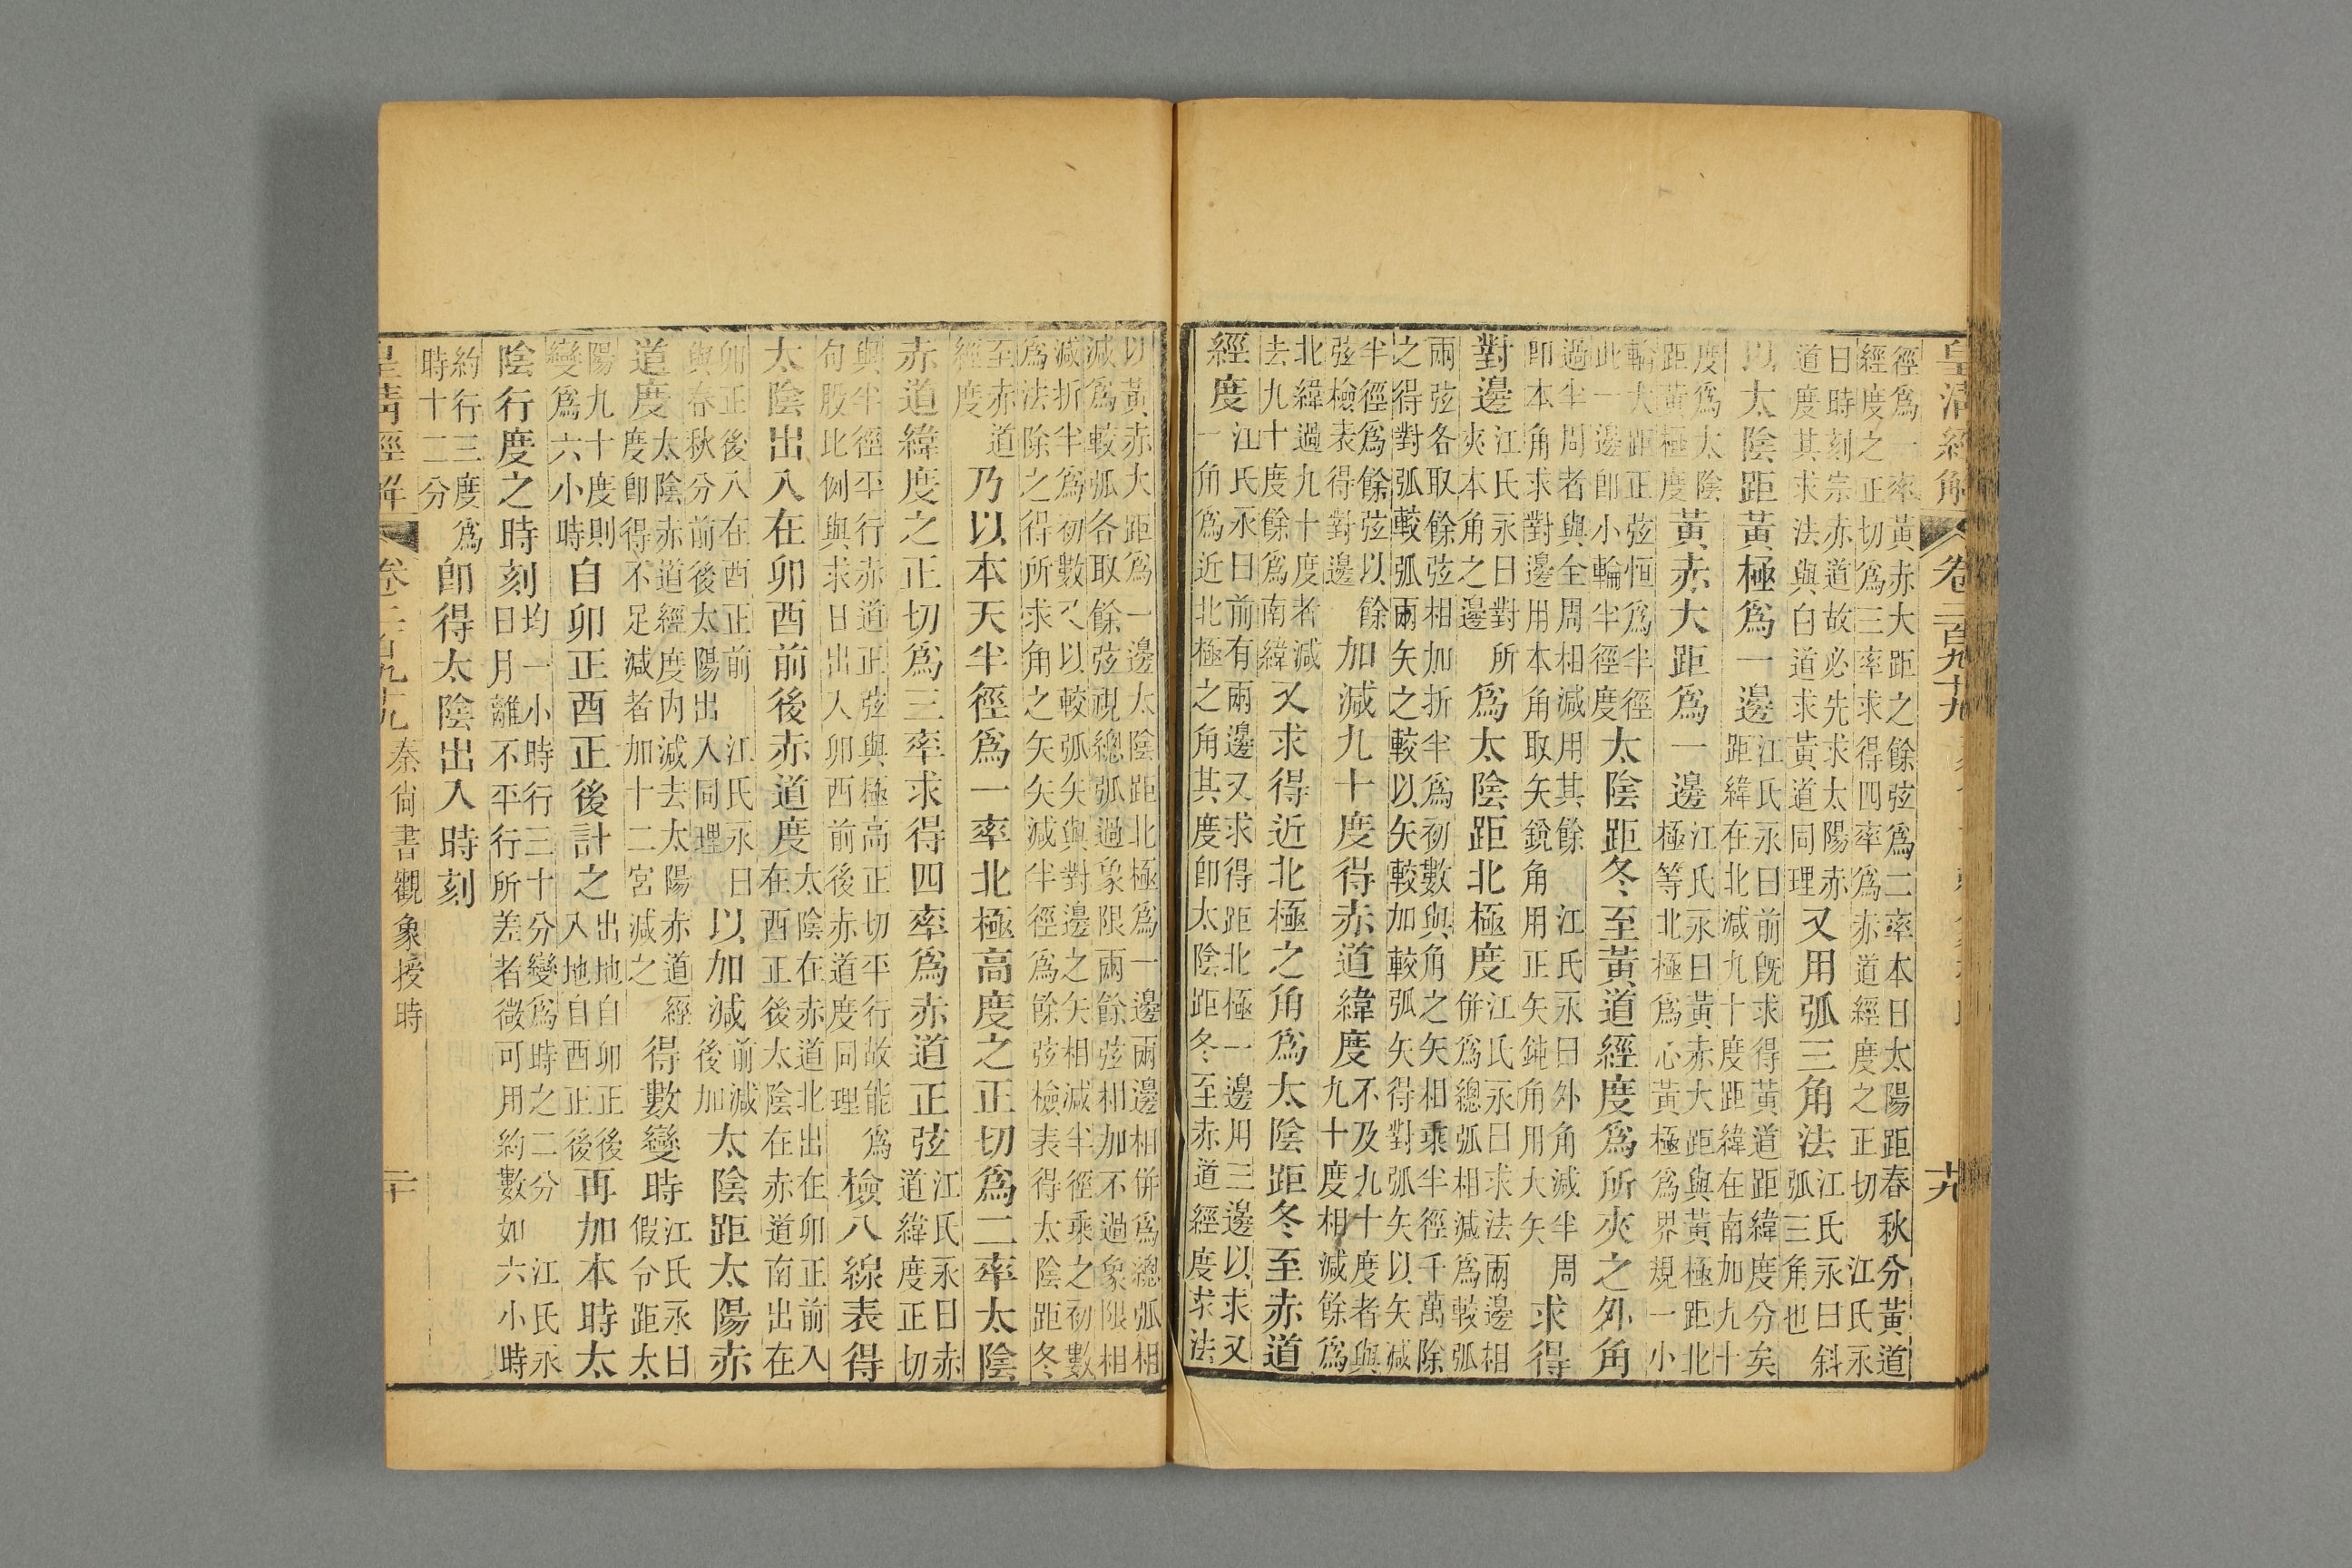 皇清經解 卷二百九十九 十九
徑爲一率黃赤大距之餘弦爲二率本日太陽距春秋分黃道
經度之正切爲三率求得四率爲赤道經度之正切 江氏永
曰時刻宗赤道故必先求太陽赤
道度其求法與白道求黃道同理
又用弧三角法
江氏永曰斜
弧三角也
以太陰距黃極爲一邊
江氏永曰前既求得黃道距緯度分矣
距緯在北減九十度距緯在南加九十
度爲太陰
距黃極度
黃赤大距爲一邊
江氏永曰黃赤大距與黃極距北
極等北極爲心黃極爲界規一小
輪大距正弦恒爲半徑
此一邊卽小輪半徑度
太陰距冬至黃道經度爲所夾之外角
過半周者與全周相減用其餘 江氏永曰外角減半周
卽本角求對邊用本角取矢銳角用正矢鈍角用大矢
求得
對邊
江氏永曰對所
夾本角之邊
爲太陰距北極度
江氏永曰求法兩邊相
併爲總弧相減爲較弧
兩弦各取餘弦相加折半爲初數與角之矢相乘半徑千萬除
之得對弧較弧兩矢之較以矢較加較弧矢得對弧矢以矢減
半徑爲餘弦以餘
弦檢表得對邊
加減九十度得赤道緯度
不及九十度者與
九十度相減餘爲
北緯過九十度者減
去九十度餘爲南緯
又求得近北極之角爲太陰距冬至赤道
經度
江氏永曰前有兩邊又求得距北極一邊用三邊以求又
一角爲近北極之角其度卽太陰距冬至赤道經度求法
以黃赤大距爲一邊太陰距北極爲一邊兩邊相併爲總弧相
減爲較弧各取餘弦視總弧過象限兩餘弦相加不過象限相
減折半爲初數又以較弧矢與對邊之矢相減半徑乘之初數
爲法除之得所求角之矢矢減半徑爲餘弦檢表得太陰距冬
至赤道
經度
乃以本天半徑爲一率北極高度之正切爲二率太陰
赤道緯度之正切爲三率求得四率爲赤道正弦
江氏永曰赤
道緯度正切
與半徑平行赤道正弦與極高正切平行故能爲
句股比例與求日出入卯酉前後赤道度同理
檢八線表得
太陰出入在卯酉前後赤道度
太陰在赤道北出在卯正前入
在酉正後太陰在赤道南出在
卯正後入在酉正前 江氏永曰
與春秋分前後太陽出入同理
以加減
前減
後加
太陰距太陽赤
道度
太陰赤道經度内減去太陽赤道經
度卽得不足減者加十二宮減之
得數變時
江氏永曰
假令距太
陽九十度則
變爲六小時
自卯正酉正後計之
出地自卯正後
入地自酉正後
再加本時太
陰行度之時刻
均一小時行三十分變爲時之二分 江氏永
曰月離不平行所差者微可用約數如六小時
約行三度爲
時十二分
卽得太陰出入時刻
皇清經解 卷二百九十九 秦尙書觀象授時 二十